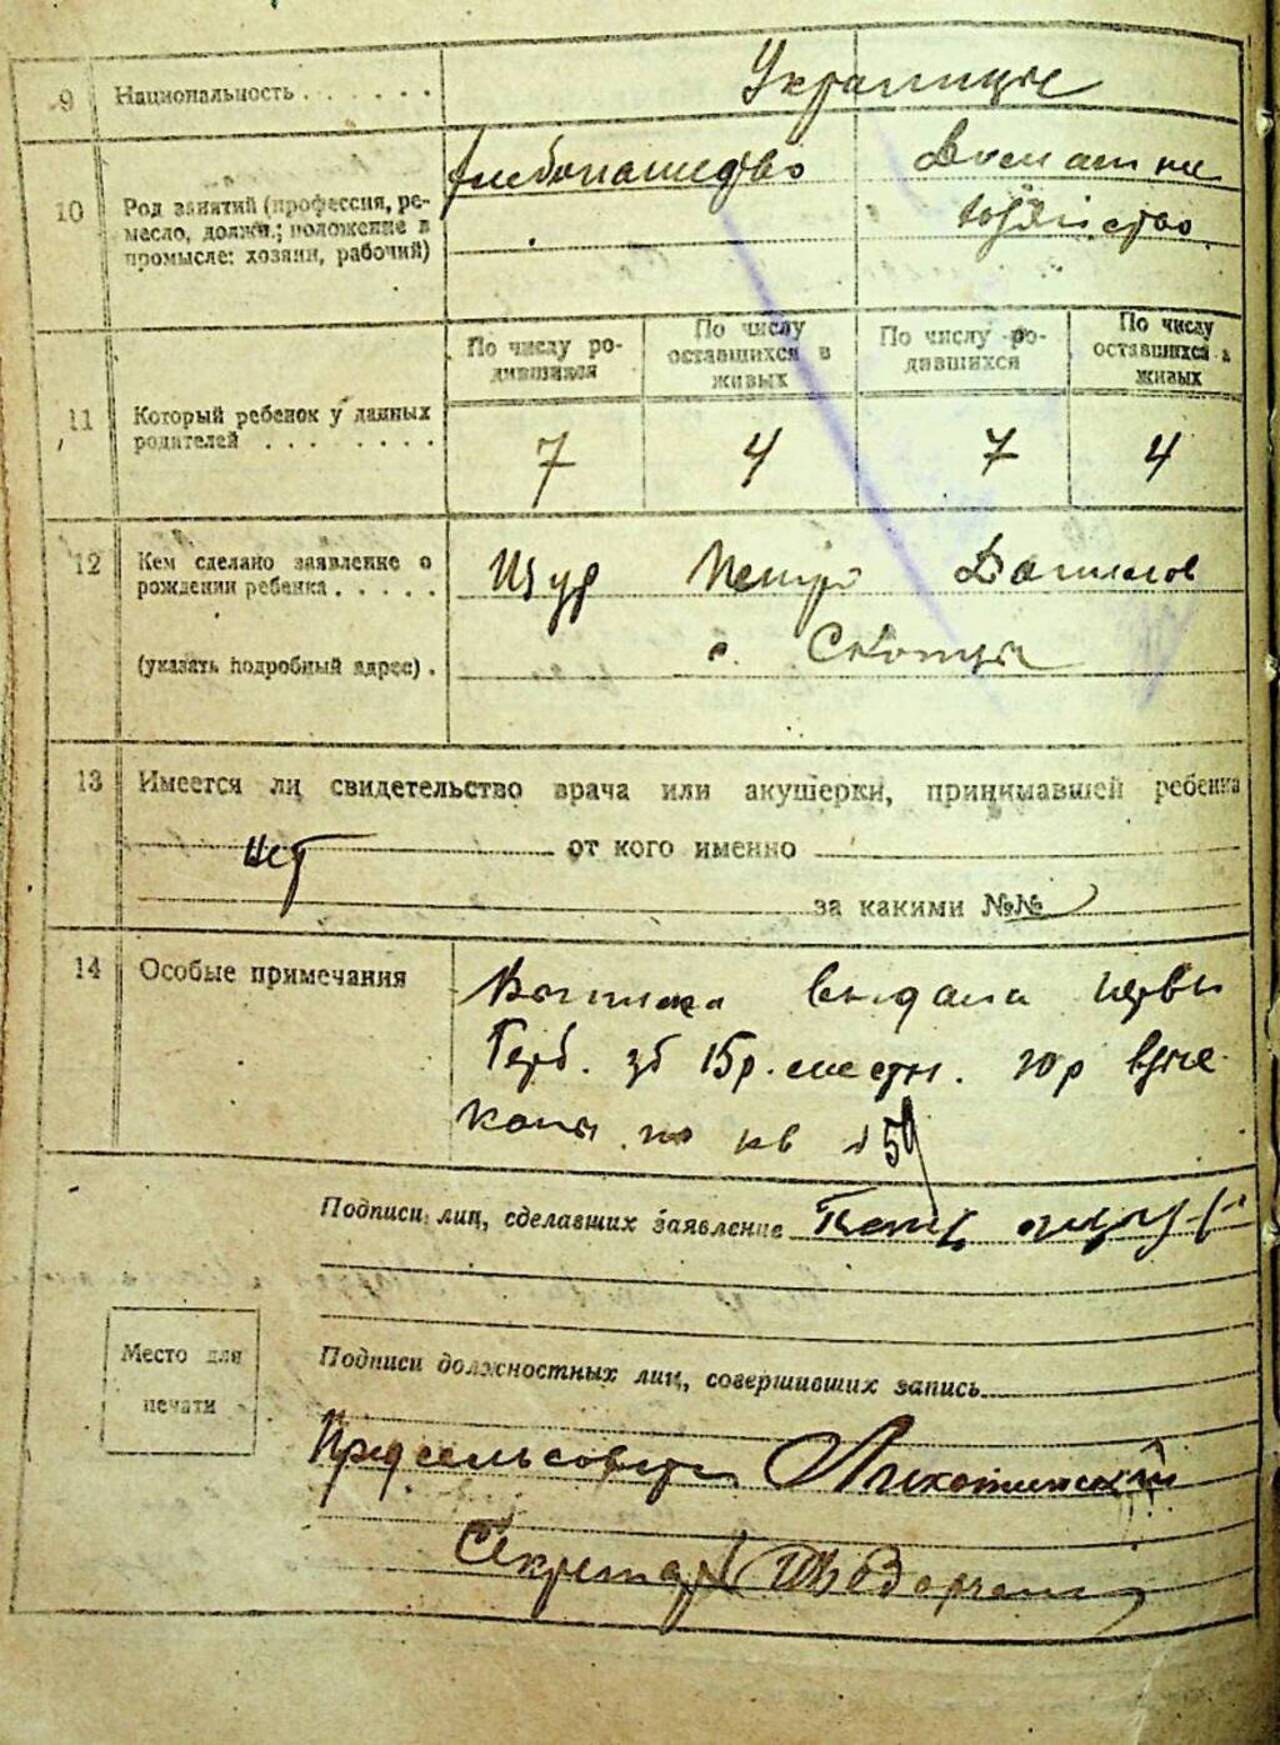 9 Национальность . . . . . . Украинцы
10 Род занятий (профессия, ре-
месло, должн.; положение в
промысле: хозяин, рабочий)
хлебопашество
Домашнее
хозяйство
11 Который ребенок у данных
родителей . . . . . . . .
По числу ро-
дившихся
По числу
оставшихся в
живых
По числу ро-
дившихся
По числу
оставшихся в
живых
7 4 7 4
12 Кем сделано заявление о
рождении ребенка . . . . .
(указать подробный адрес) .
Щур Петро Данилов
с. Скотцы
13 Имеется ли свидетельство врача или акушерки, принимавшей ребенка
нет от кого именно
за какими №№
14 Особые примечания
выдана
Герб. сб 15р. местн. 10р
по кв 59
Подписи лиц, сделавших заявление
Место для
печати
Подписи должностных лиц, совершивших запись
Предсельсовета
Секретарь